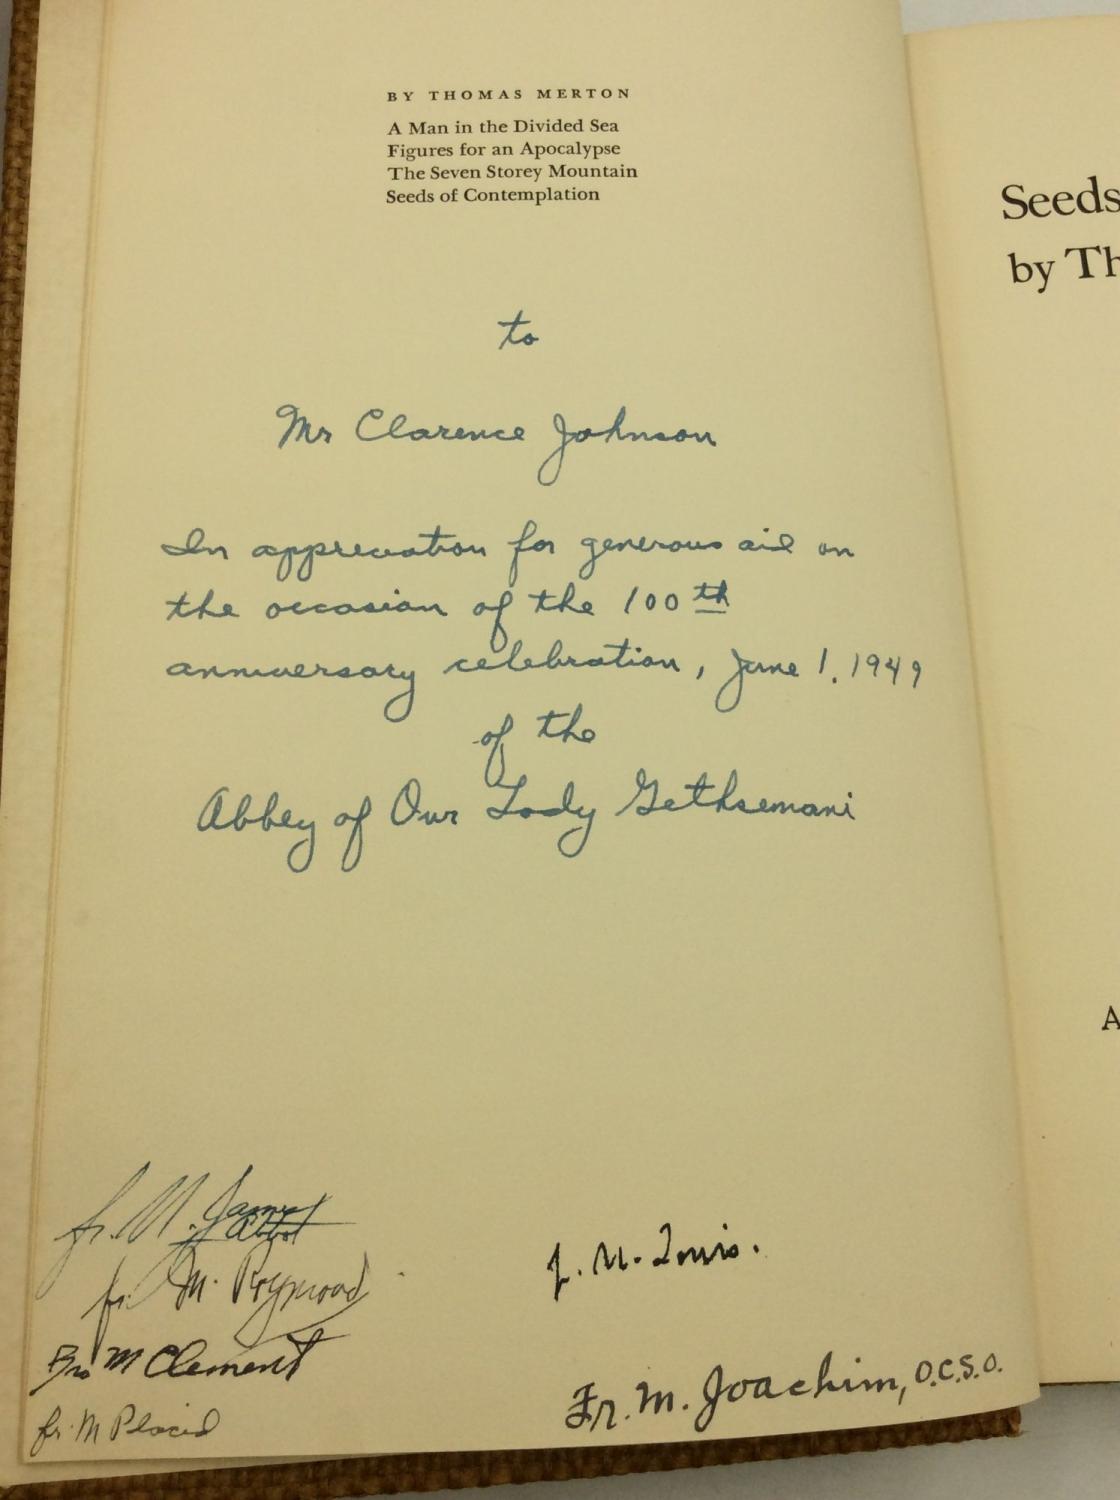 BY THOMAS MERTON
A Man in the Divided Sea
Figures for an Apocalypse
The Seven Storey Mountain
Seeds of Contemplation
to
Mr Clarence Johnson
In appreciation for generous aid on
the occasion of the 100th
anniversary celebration, June 1, 1949
of the
Abbey of Our Lady Gethsemani
fr. M. James
abbot
fr. M. Raymond
Bro M Clement
fr. M Placid
f. M. Louis.
Fr. M. Joachim, O.C.S.O.
Seeds
by Th
A